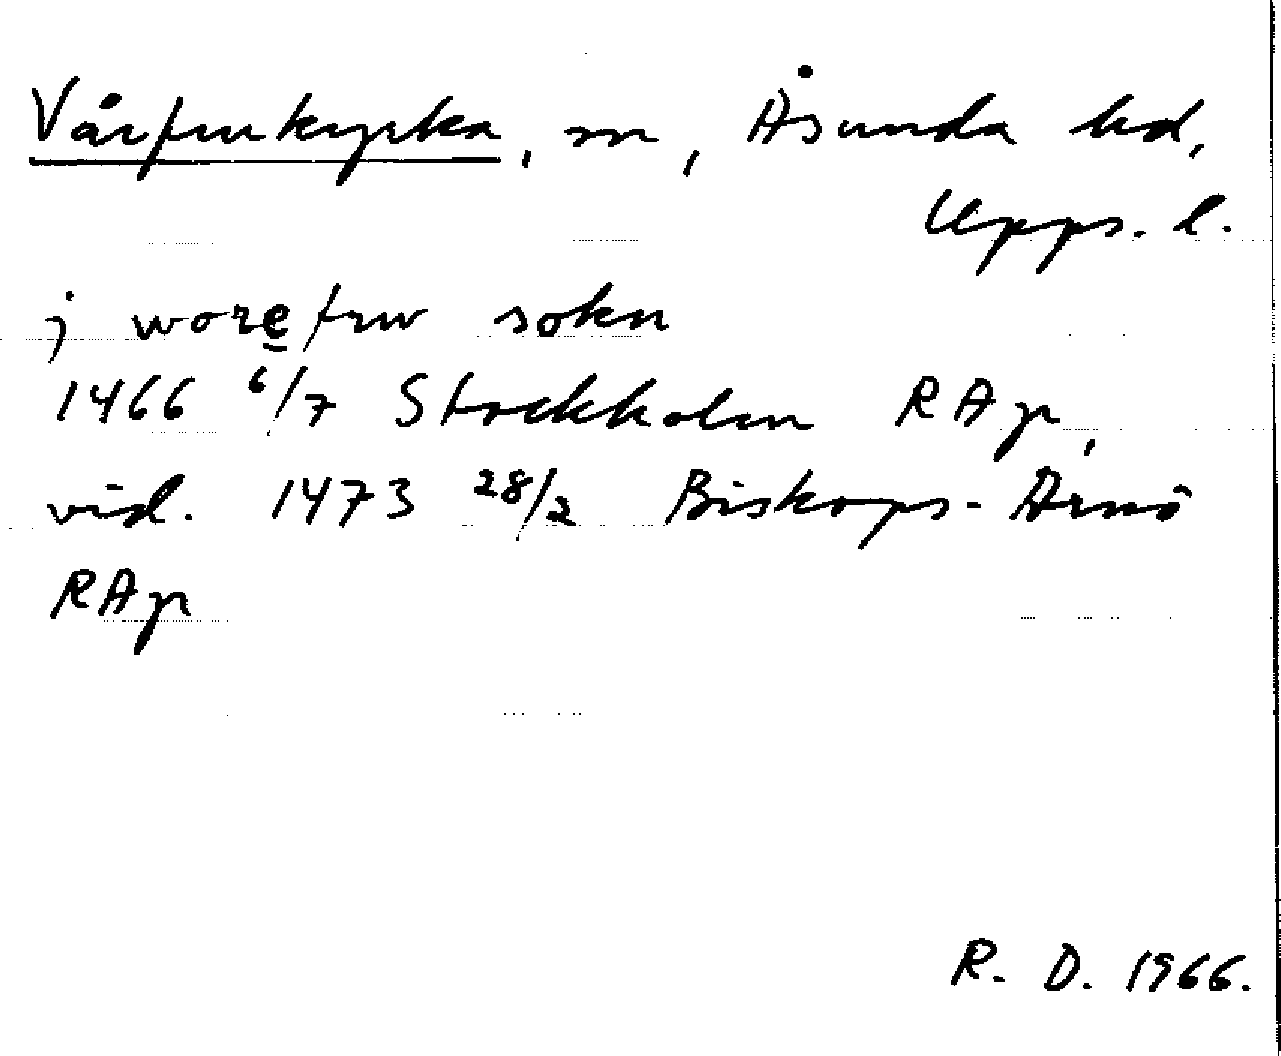 Vårfrukyrka, sn, Åsunda hd,
Upps. l.
j worefrw sokn
1466 6/7 Stockholm RAp,
vid. 1473 28/2 Biskops-Arnö
RAp
R. D. 1966.